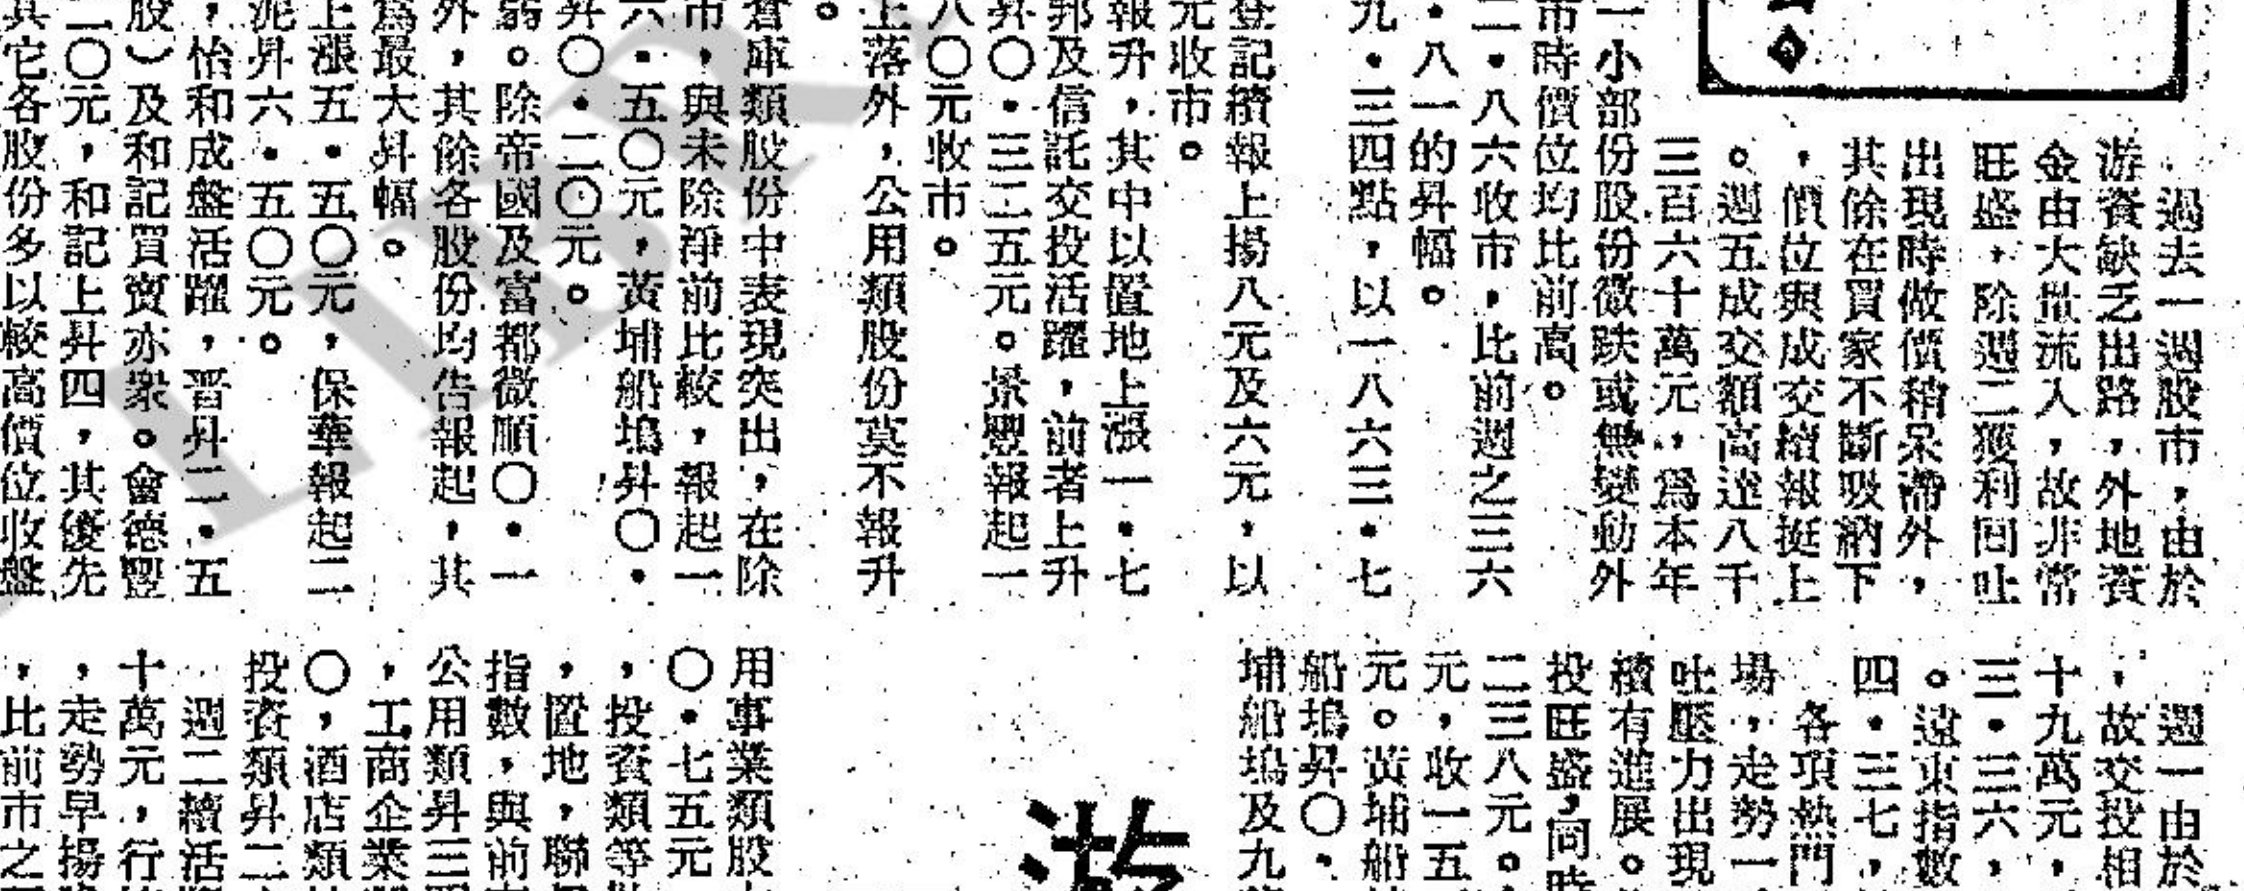 過去一週股市，由於
游資缺乏出路，外地資
金由大批流入，故非常
旺盛，除週二獲利回吐
出現時做價稍呆滯外，
其餘在買家不斷吸納下
，價位與成交續報挺上
。週五成交額高達八千
三百六十萬元，爲本年
一小部份股份微跌或無變動外
市時價位均比前高。
二・八六收市，比前週之三六
・八一的昇幅。
九・三四點，以一八六三・七
登記續報上揚八元及六元，以
元收市。
報升，其中以置地上漲一・七
邦及信託交投活躍，前者上升
昇〇・三二五元。景豐報起一
八〇元收市。
上落外，公用類股份莫不報升
。
倉庫類股份中表現突出，在除
市，與未除淨前比較，報起一
六・五〇元，黃埔船塢昇〇・
昇〇・二〇元。
弱。除帝國及富都微順〇・一
外，其餘各股份均告報起，其
爲最大昇幅。
上漲五・五〇元，保華報起二
泥昇六・五〇元。
，怡和成盤活躍，晋昇二・五
股）及和記買賣亦衆。會德豐
二〇元，和記上昇四，其優先
其它各股份多以較高價位收盤
週一由於
，故交投相
十九萬元，
三・三六，
。遠東指數
四・三七，
各項熱門
場，走勢一
吐壓力出現
續有進展。
投旺盛，同時
二三八元。
元，收一五
元。黃埔船
船塢昇〇・
埔船塢及九
游
用事業類股
〇・七五元
，投資類等
，置地，聯
指數，與前
公用類昇三
，工商企業
〇，酒店類
投資類昇二
週二續活
十萬元，行
，走勢早揚
，比前市之